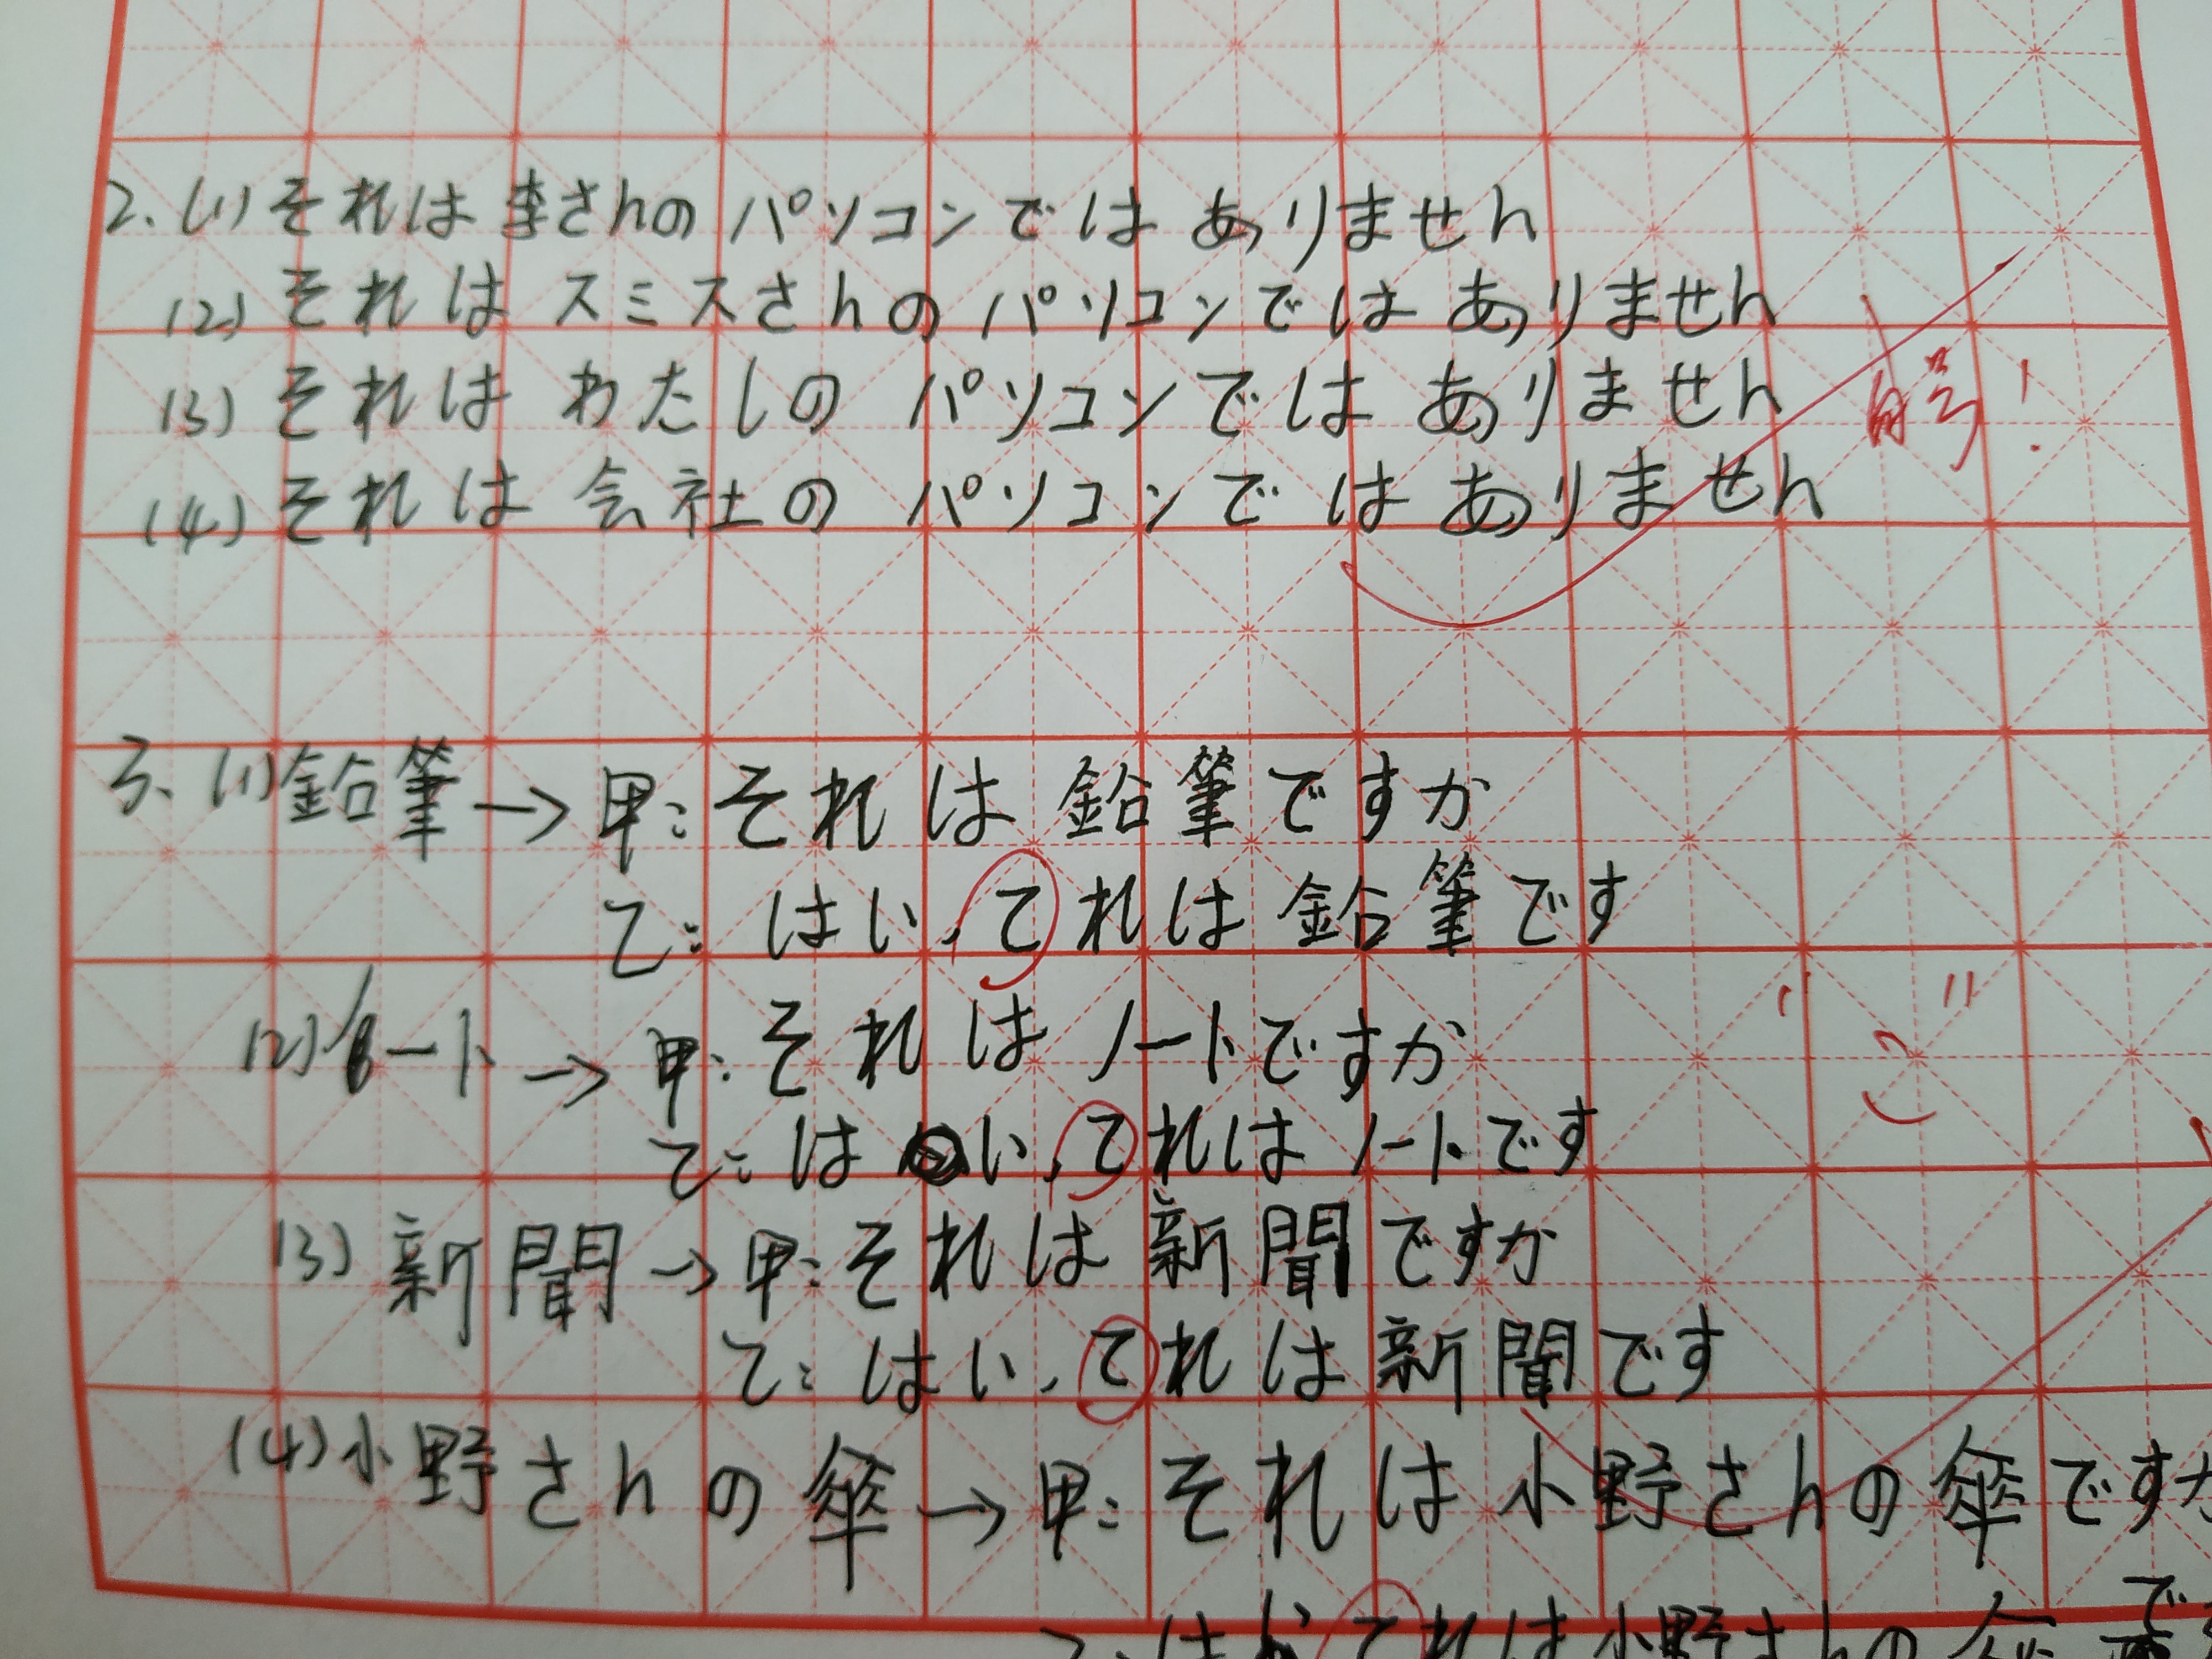 2. (1) それは李さんのパソコンではありません
(2) それはスミスさんのパソコンではありません
(3) それはわたしのパソコンではありません
(4) それは会社のパソコンではありません
句号!
3. (1) 鉛筆→甲:それは鉛筆ですか
乙:はい、てれは鉛筆です
(2) ノート→甲:それはノートですか
乙:はい、てれはノートです
(3) 新聞→甲:それは新聞ですか
乙:はい、てれは新聞です
(4) 小野さんの傘→甲:それは小野さんの傘ですか
てれは小野さんの傘で